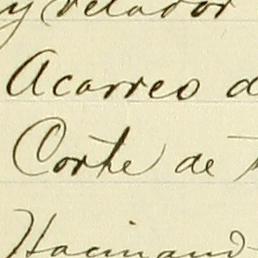 y velador
Acarreo d
Corte de
Hacinand